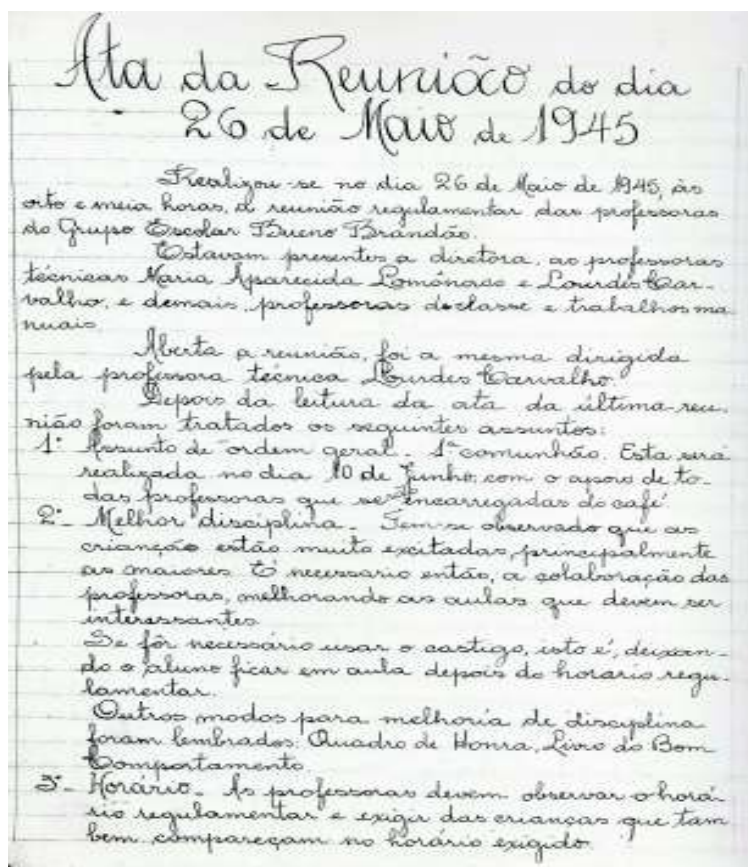 Ata da Reunião do dia
26 de Maio de 1945
Realizou-se no dia 26 de Maio de 1945, às
oito e meia horas, a reunião regulamentar das professoras
do Grupo Escolar Bueno Brandão.
Estavam presentes a diretora, as professoras
técnicas Maria Aparecida Lomônaco e Lourdes Car-
valho, e demais, professoras declasse e trabalhos ma
nuais.
Aberta a reunião, foi a mesma dirigida
pela professora técnica Lourdes Carvalho.
Depois da leitura da ata da última reu-
nião foram tratados os seguintes assuntos:
1º Assunto de ordem geral - 1ª comunhão. Esta será
realizada no dia 10 de Junho, com o apoio de to-
das professoras que se encarregadas do café.
2º- Melhor disciplina - Tem-se observado que as
crianças estão muito excitadas, principalmente
as maiores. É necessario então, a colaboração das
professoras, melhorando as aulas que devem ser
interessantes.
Se fôr necessário usar o castigo, isto é, deixan-
do o aluno ficar em aula depois do horario regu-
lamentar.
Outros modos para melhoria de disciplina
foram lembrados: Quadro de Honra, Livro do Bom
Comportamento.
3º- Horário - As professoras devem observar o horá-
rio regulamentar e exigir das crianças que tam
bem compareçam no horário exigido.